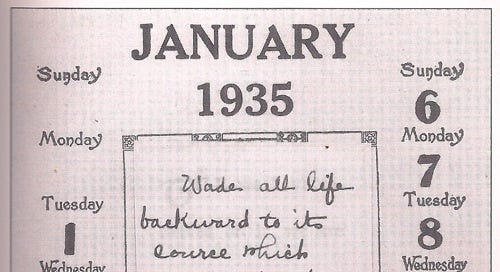 JANUARY
1935
Sunday
Monday
Tuesday
1
Wednesday
Wades all life
backward to its
source which
Sunday
6
Monday
7
Tuesday
8
Wednesday